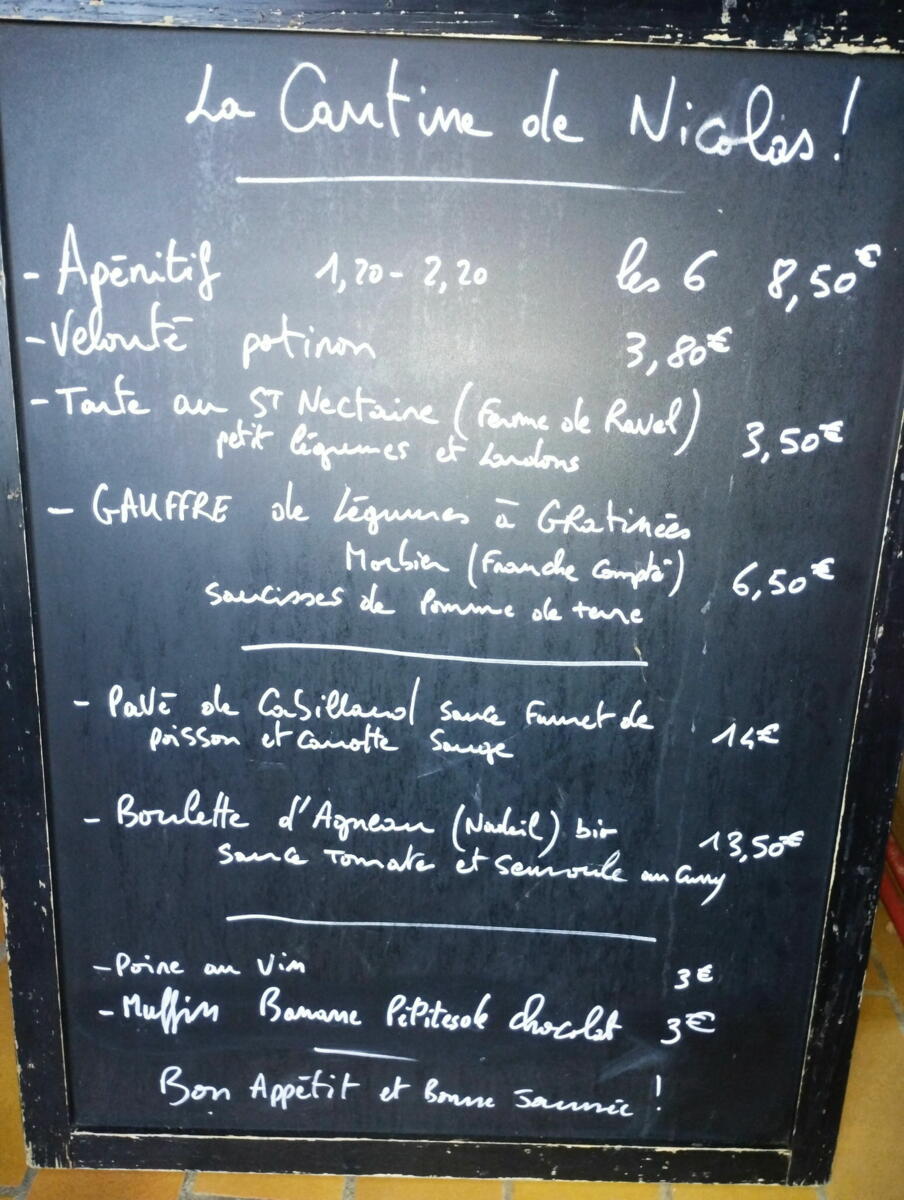 La Cantine de Nicolas !
- Apéritif 1,20 - 2,20 les 6 8,50€
- Velouté potiron 3,80€
- Tarte au ST Nectaire (Ferme de Ravel)
petit légumes et Lardons 3,50€
- GAUFFRE de légumes à GRatinées
Morbier (Franche Compté) 6,50€
saucisses de Pomme de terre
- Pavé de Cabillaud sauce Fumet de
poisson et Carotte Sauge 14€
- Boulette d'Agneau (Nadeil) bio 13,50€
Sauce Tomate et Semoule au Curry
- Poire au Vin 3€
- Muffin Banane Pépites de chocolat 3€
Bon Appétit et Bonne Journée !